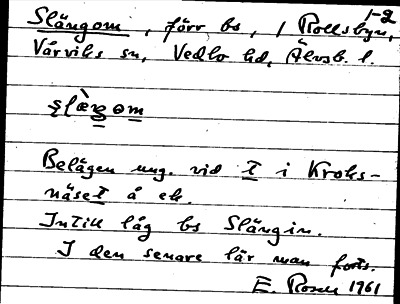 1-2
Slängom, förr bs, / Rollsbyn,
Vårviks sn, Vedbo hd, Älvsb. l.
Belägen ung. vid T i Kroks-
näset å ek.
Intill låg bs Slängin.
I den senare lär man
E. Rosell 1961